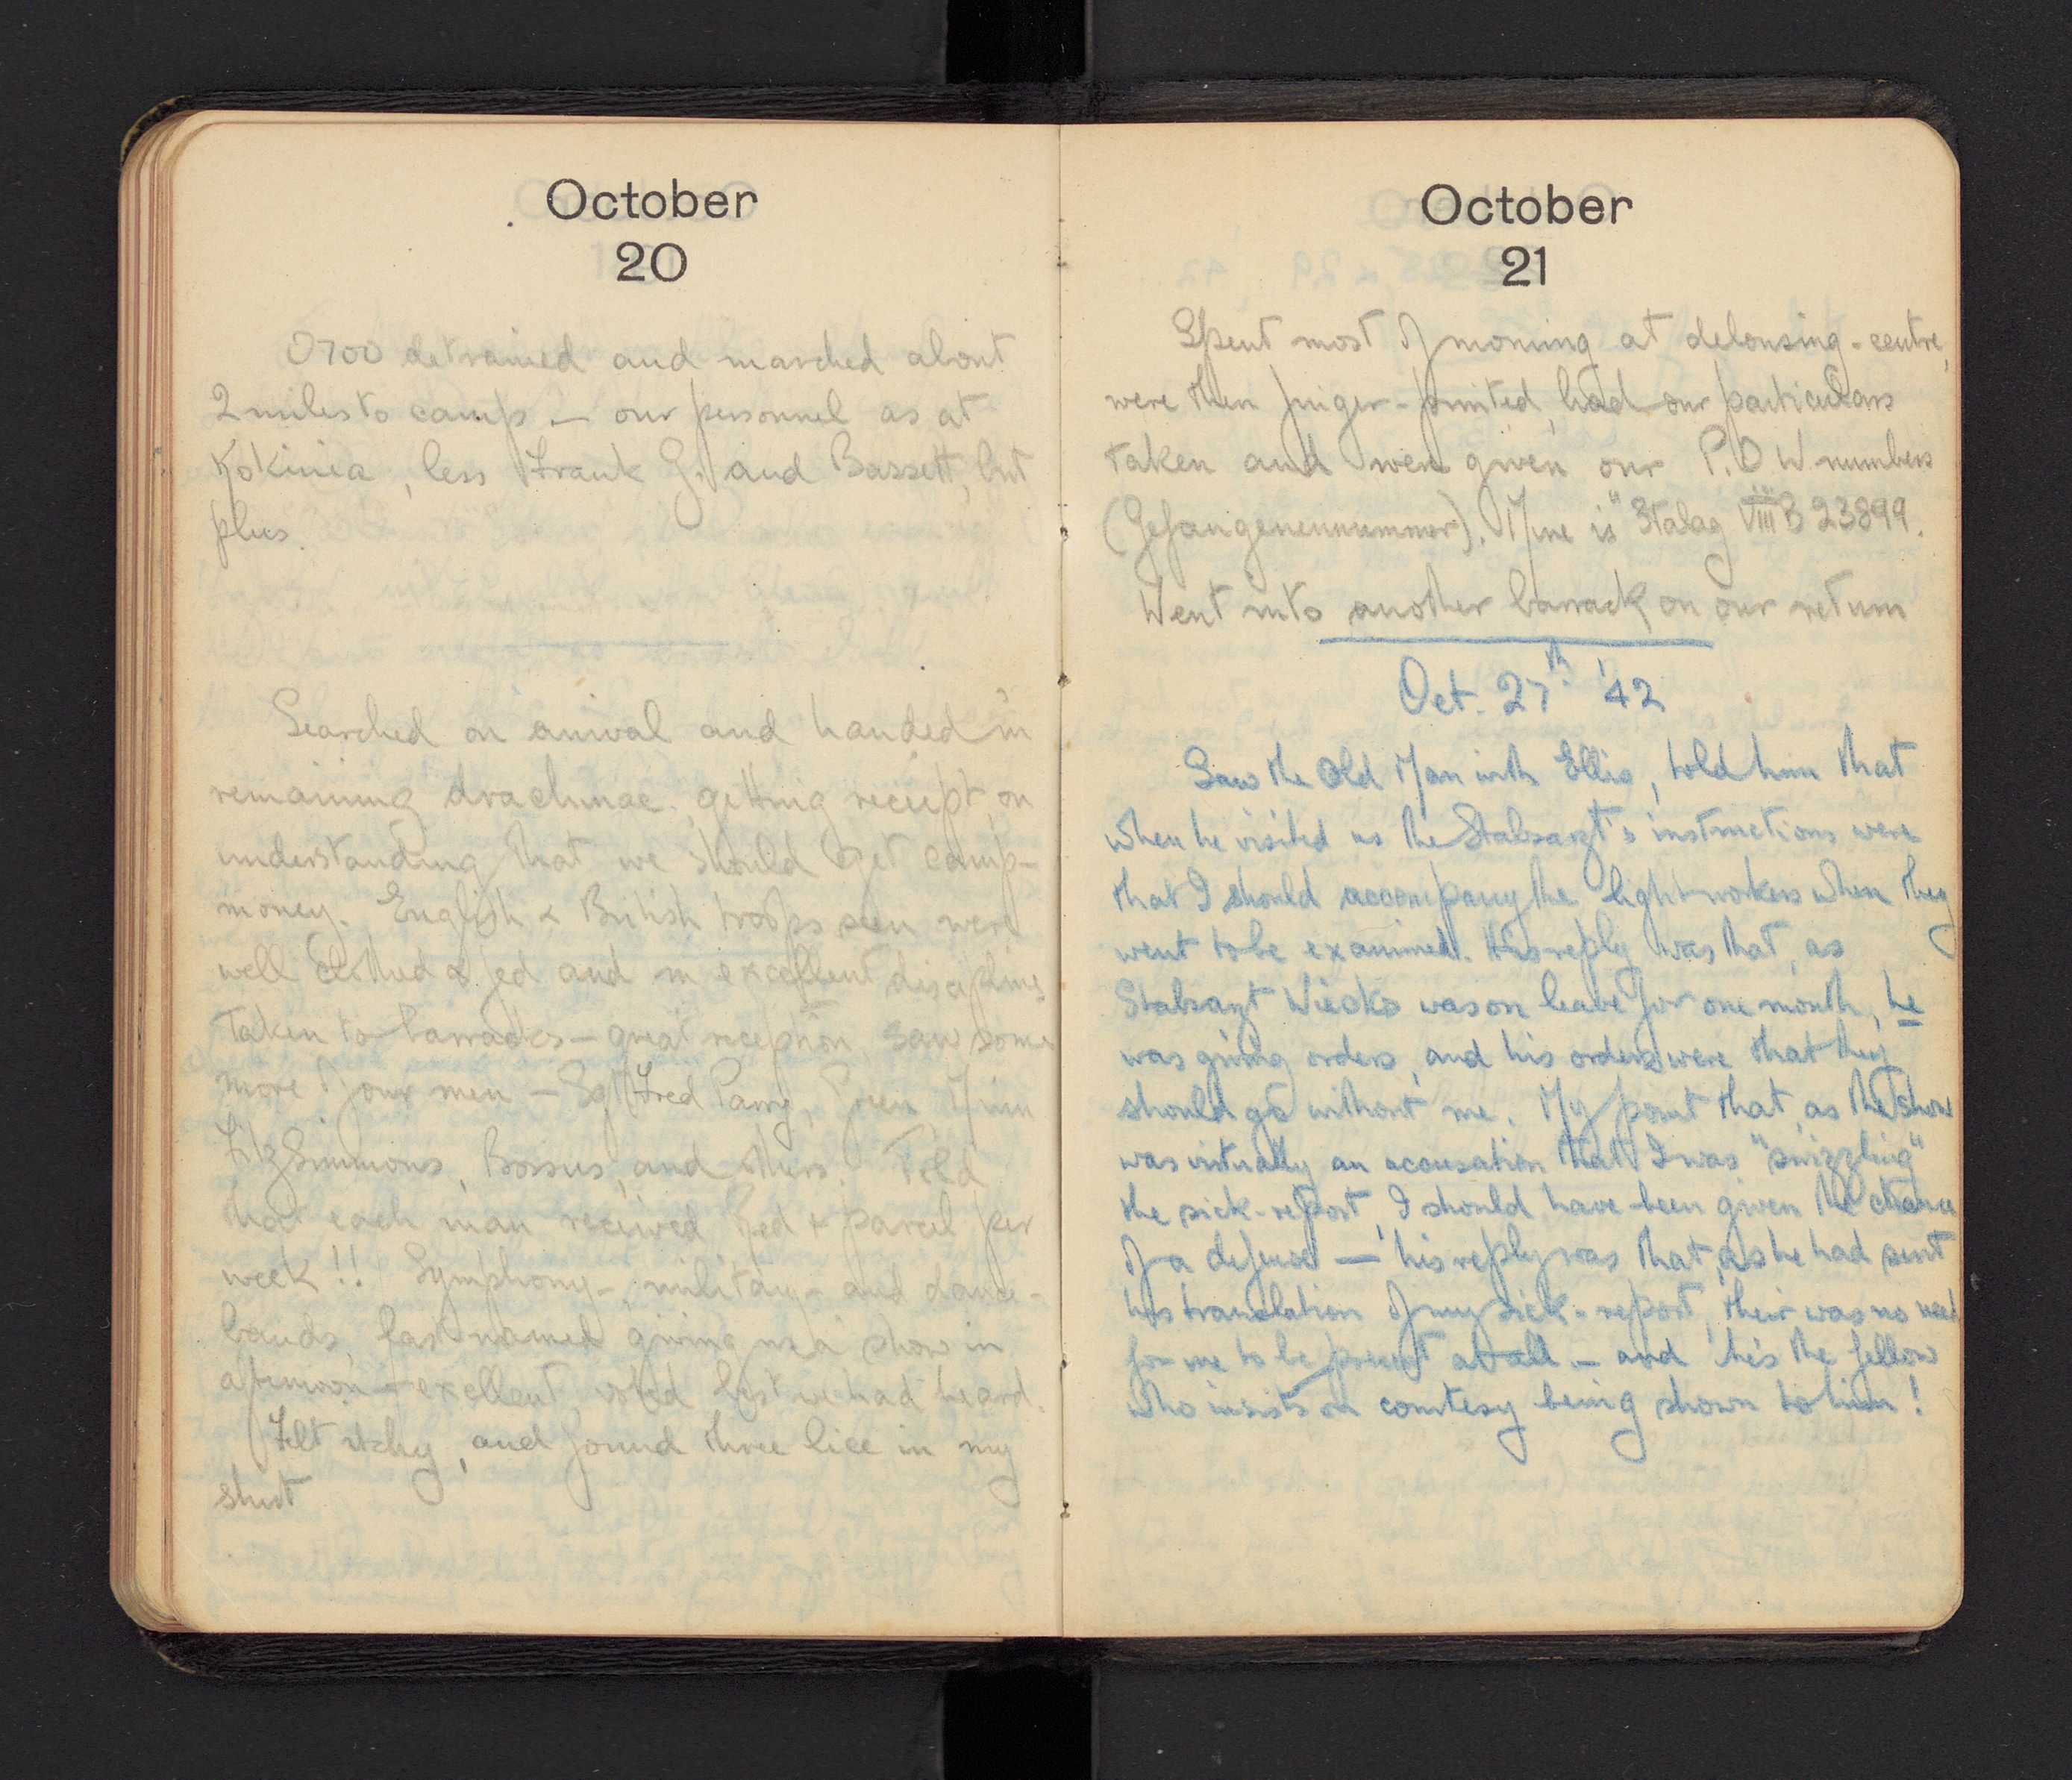 October
20
0700 detrained and marched about
2 miles to camp – our personnel as at
Kokinia, less Frank G. and Bassett, but
plus.
Searched on arrival and handed in
remaining drachmae, getting receipt, on
understanding that we should get camp-
money. English & British troops seen were
well clothed & fed and in excellent discipline
Taken to barracks – great reception, saw some
more of our men – Sgt Fred Parry, Green
FitzSimmons, and others. Told
that each man received Red + parcel per
week!! Symphony-, military- and dance-
bands, last named giving us a show in
afternoon – excellent, voted best we had heard.
Felt itchy, and found three lice in my
shirt
October
21
Spent most of morning at delousing-centre,
were then finger-printed, had our particulars
taken and were given our P.O.W numbers
(Gefangenennummer). Mine is "Stalag VIIIB 23899.
Went into another barrack on our return
Oct. 27th '42
Saw the Old Man with Ellis, told him that
when he visited us the Stabsarzt's instructions were
that I should accompany the light-workers when they
went to be examined. His reply was that, as
Stabsarzt was on leave for one month, he
was giving orders, and his orders were that they
should go without me. My point that, as the show
was virtually an accusation that I was "swizzling"
the sick-report, I should have been given the chance
of a defence – his reply was that, as he had sent
his translation of my sick-report, their was no need
for me to be present at all – and he's the fellow
who insists on courtesy being shown to him!